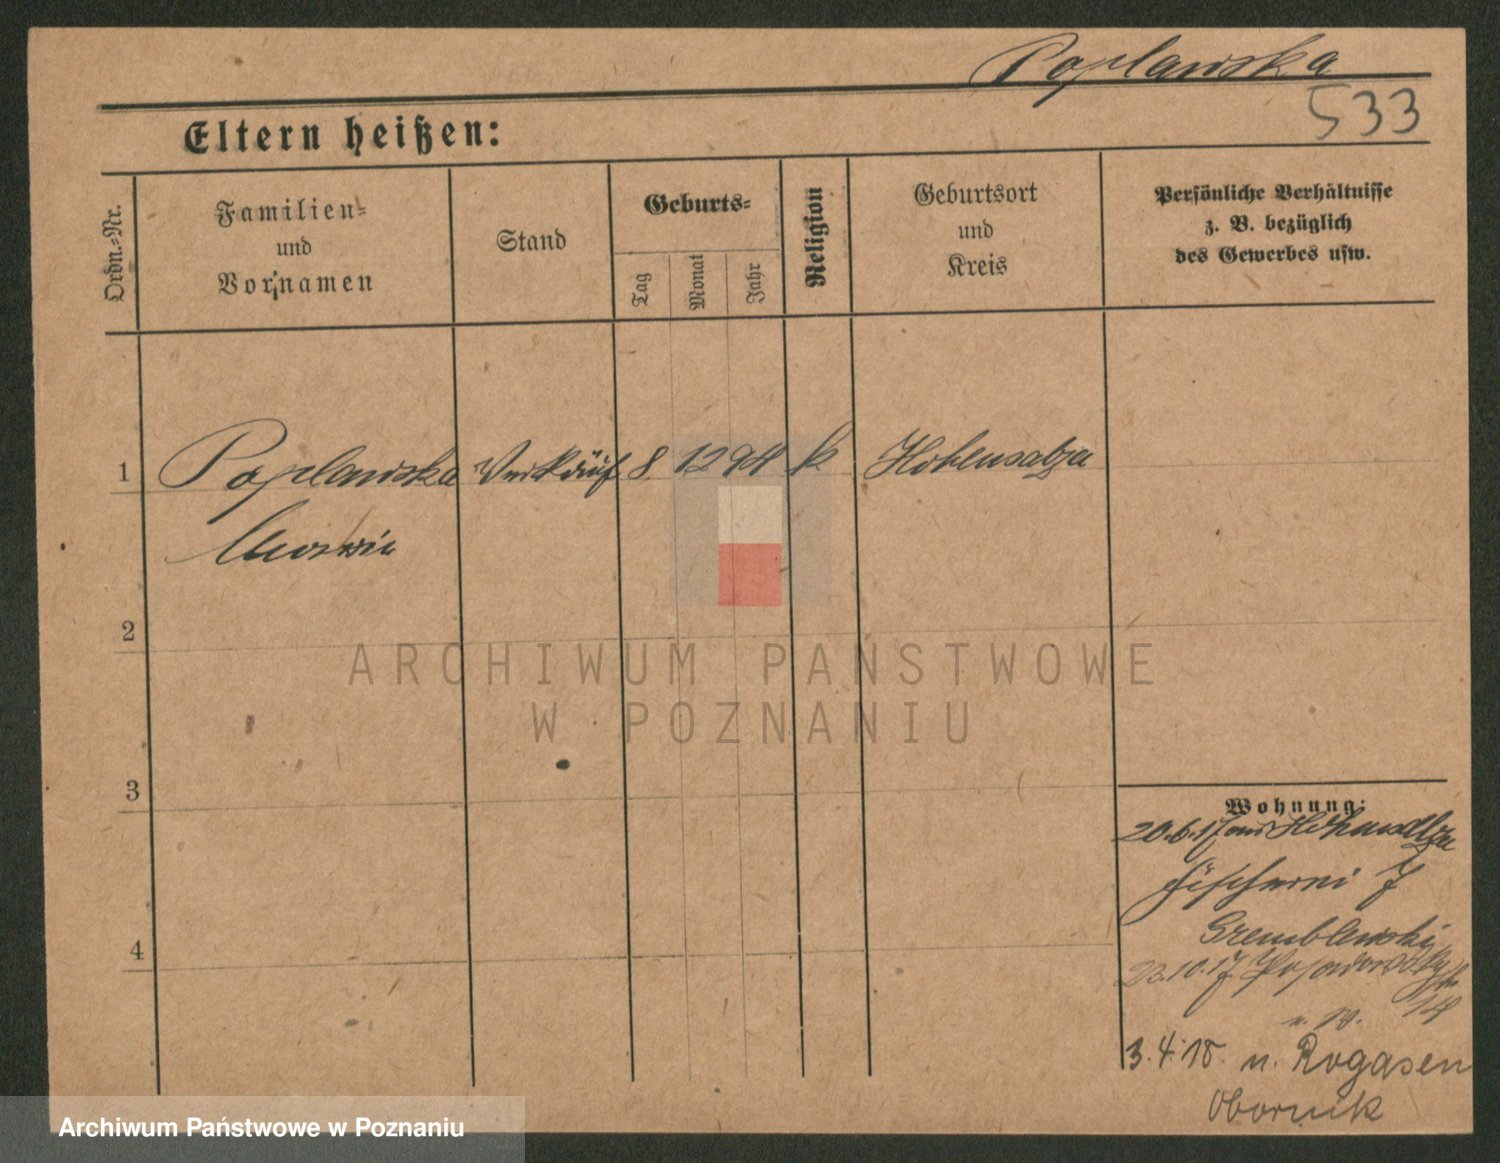 Poplawska
533
Eltern heißen:
Ordn.-Nr.
Familien-
und
Vornamen
Stand
Geburts-
Tag
Monat
Jahr
Religion
Geburtsort
und
Kreis
Persönliche Verhältnisse
z. B. bezüglich
des Gewerbes usw.
1
Poplawska Verkäuf 8 12 94 k Hohensalza
2
3
4
Wohnung:
20.6.17 aus Hohensalza
Fischerei 7
Gremblewski
23.10.17 Posadowsky
14
3.4.18 n. Rogasen
Obornik
ARCHIWUM PAŃSTWOWE
W POZNANIU
Archiwum Państwowe w Poznaniu